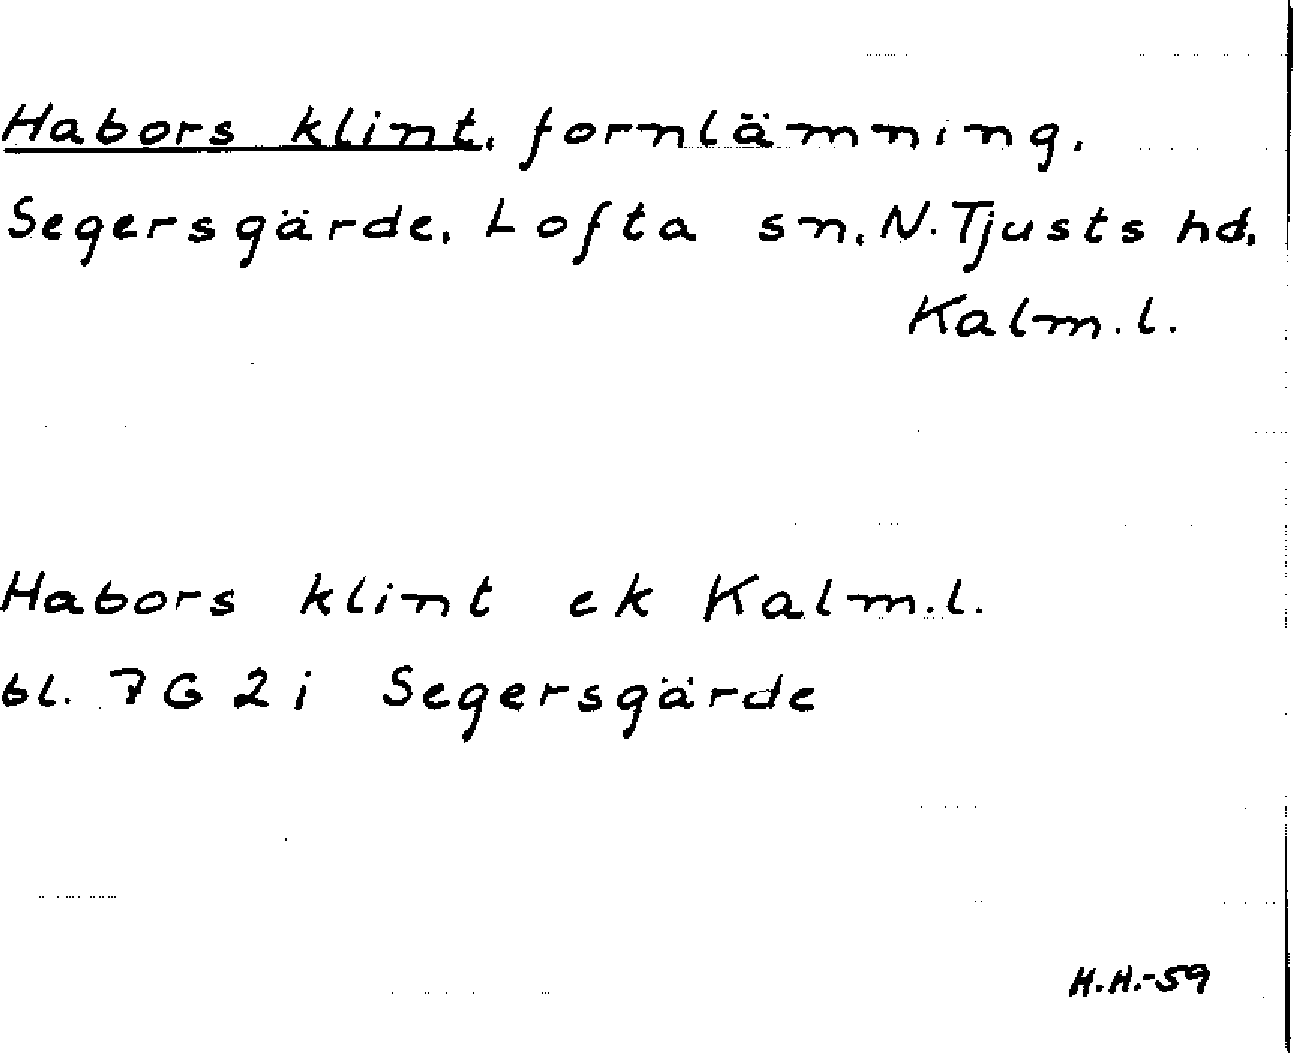 Habors klint, fornlämning,
Segersgärde, Lofta sn, N. Tjusts hd,
Kalm.l.
Habors klint ek Kalm.l.
bl. 7G 2i Segersgärde
H.H.-59